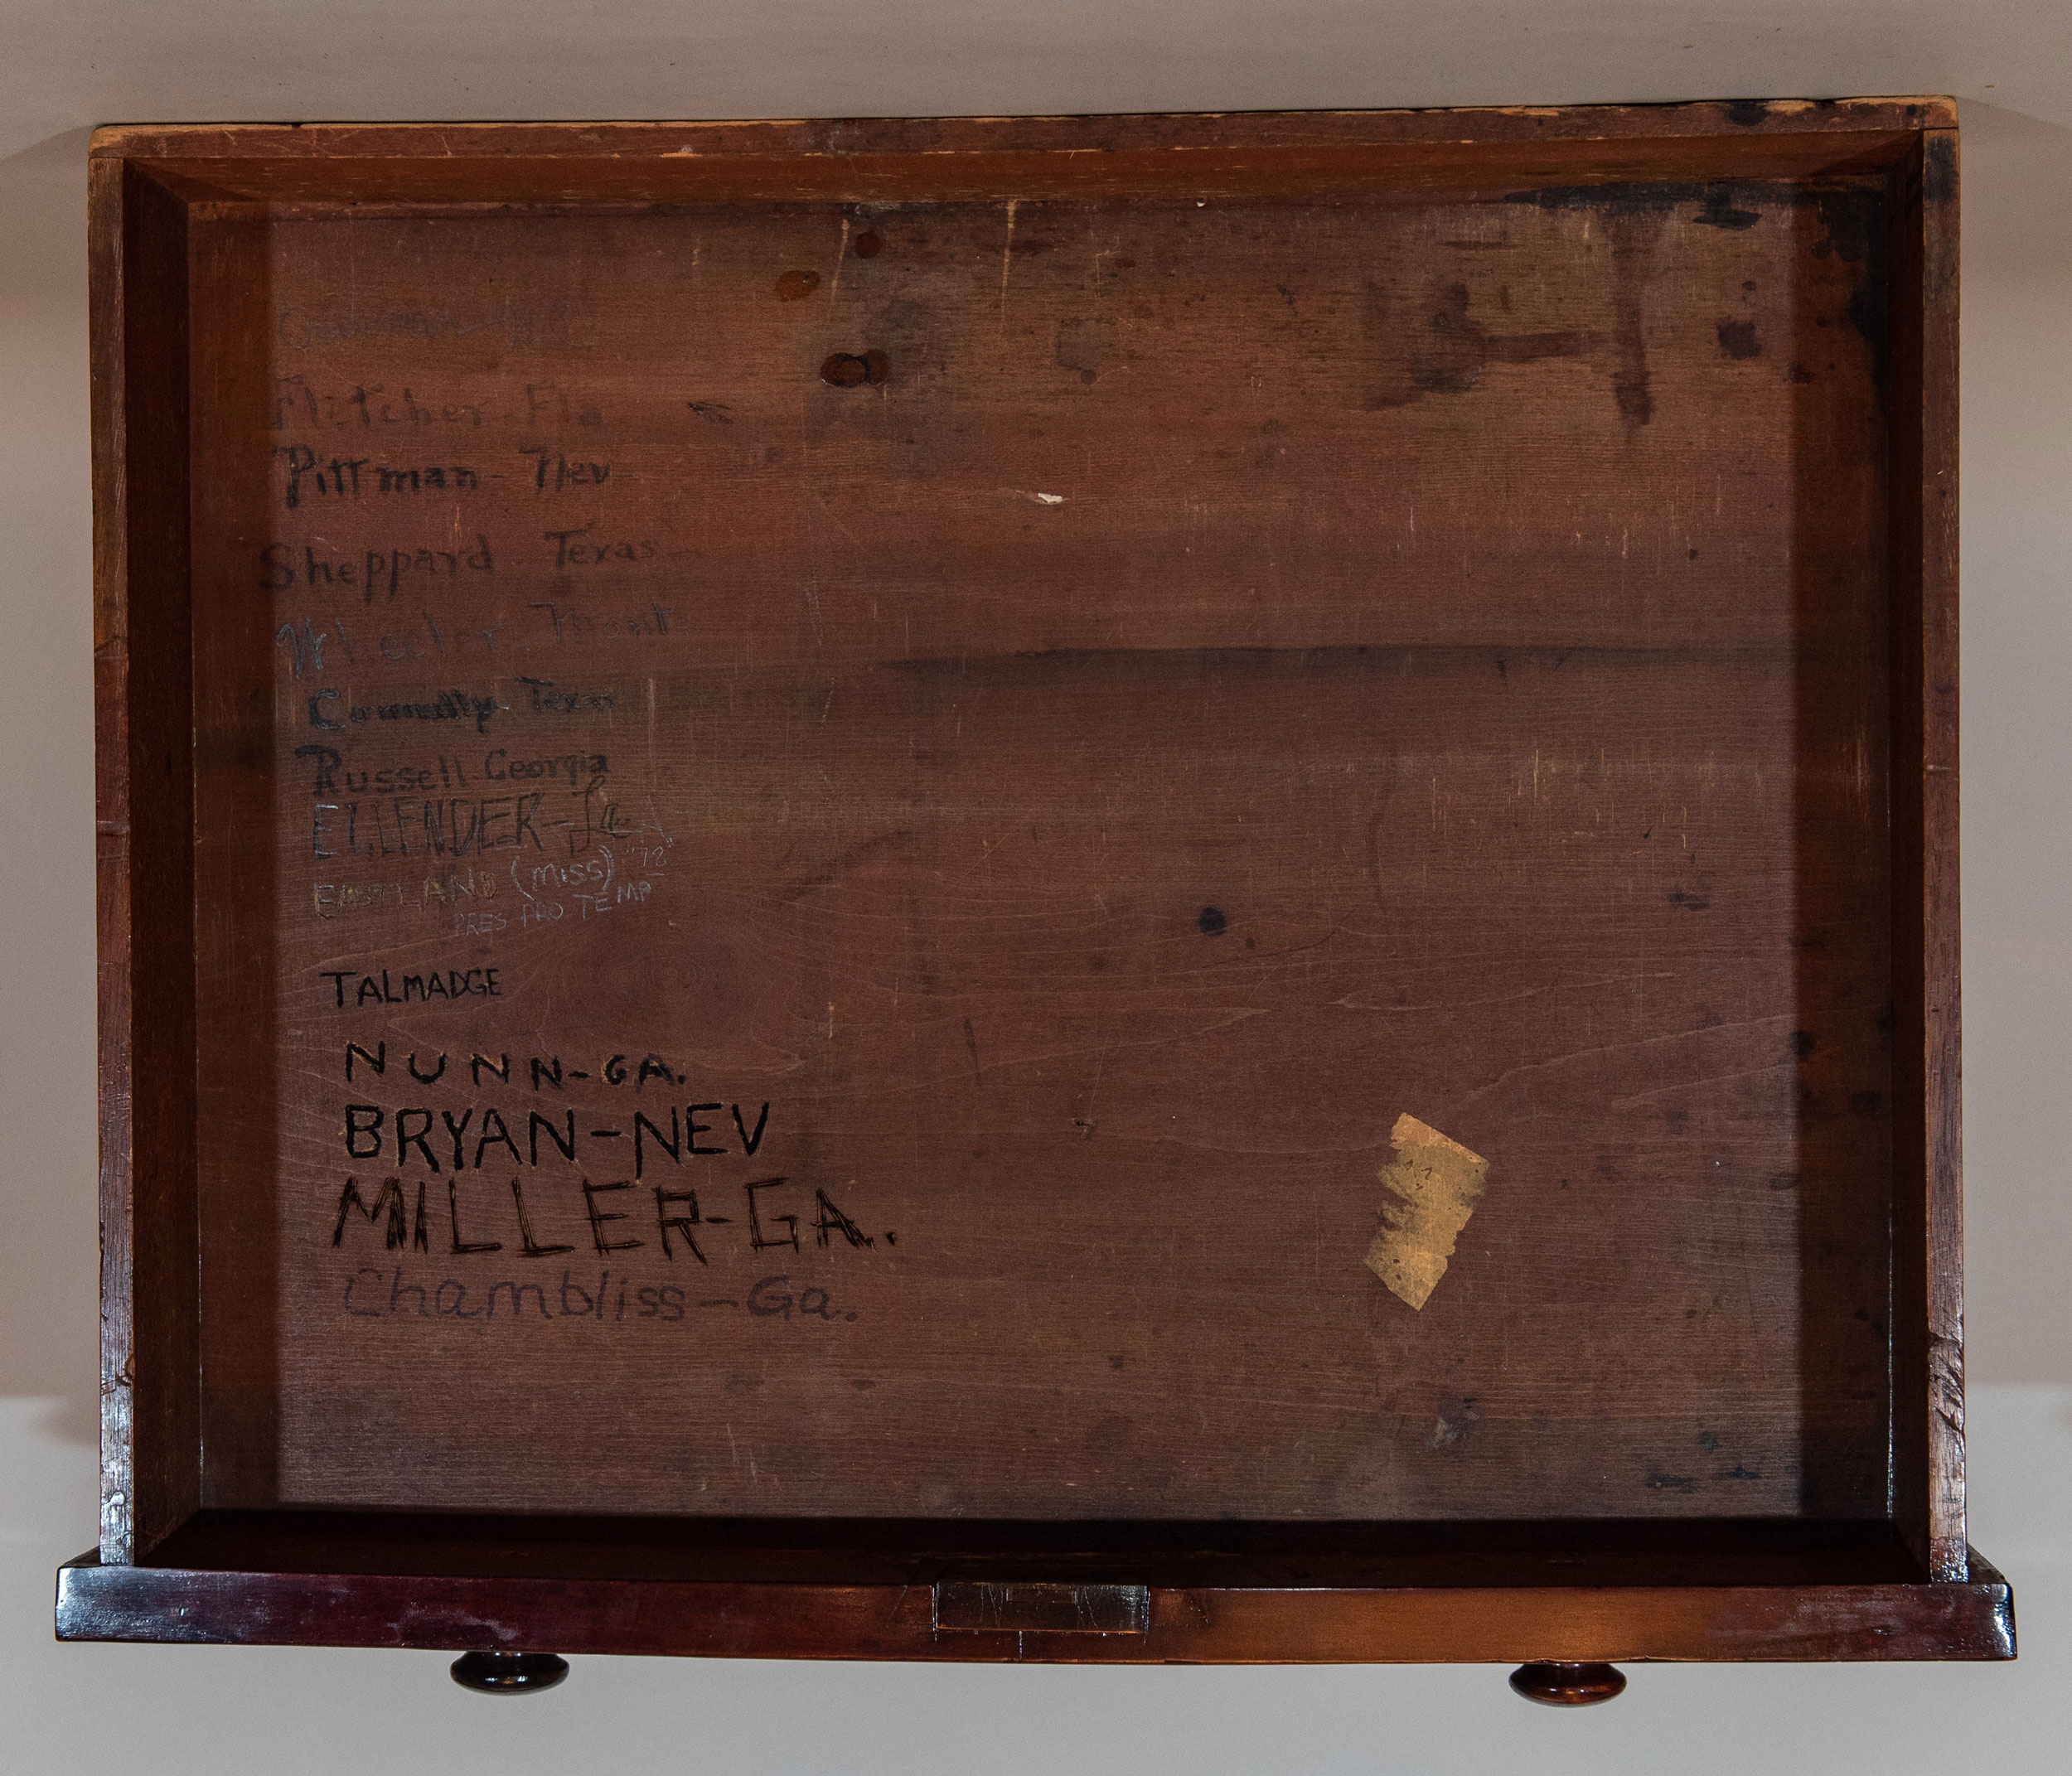 Fletcher-Fla
Pittman-Nev
Sheppard Texas
Wheeler-Mont
Connally-Texas
Russell-Georgia
ELLENDER-La
EASTLAND (MISS) "72"
PRES PRO TEMP
TALMADGE
NUNN-GA.
BRYAN-NEV
MILLER-GA.
Chambliss-Ga.